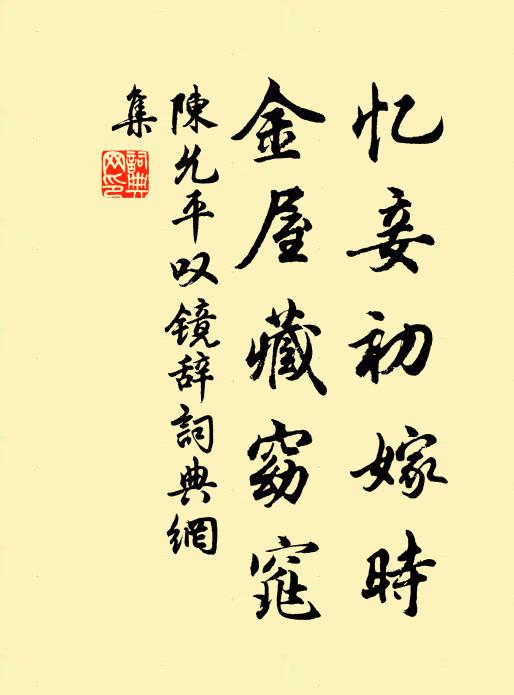 忆妾初嫁時
金屋藏窈窕
陳允平叹镜辞詞典網
集
詞典网印